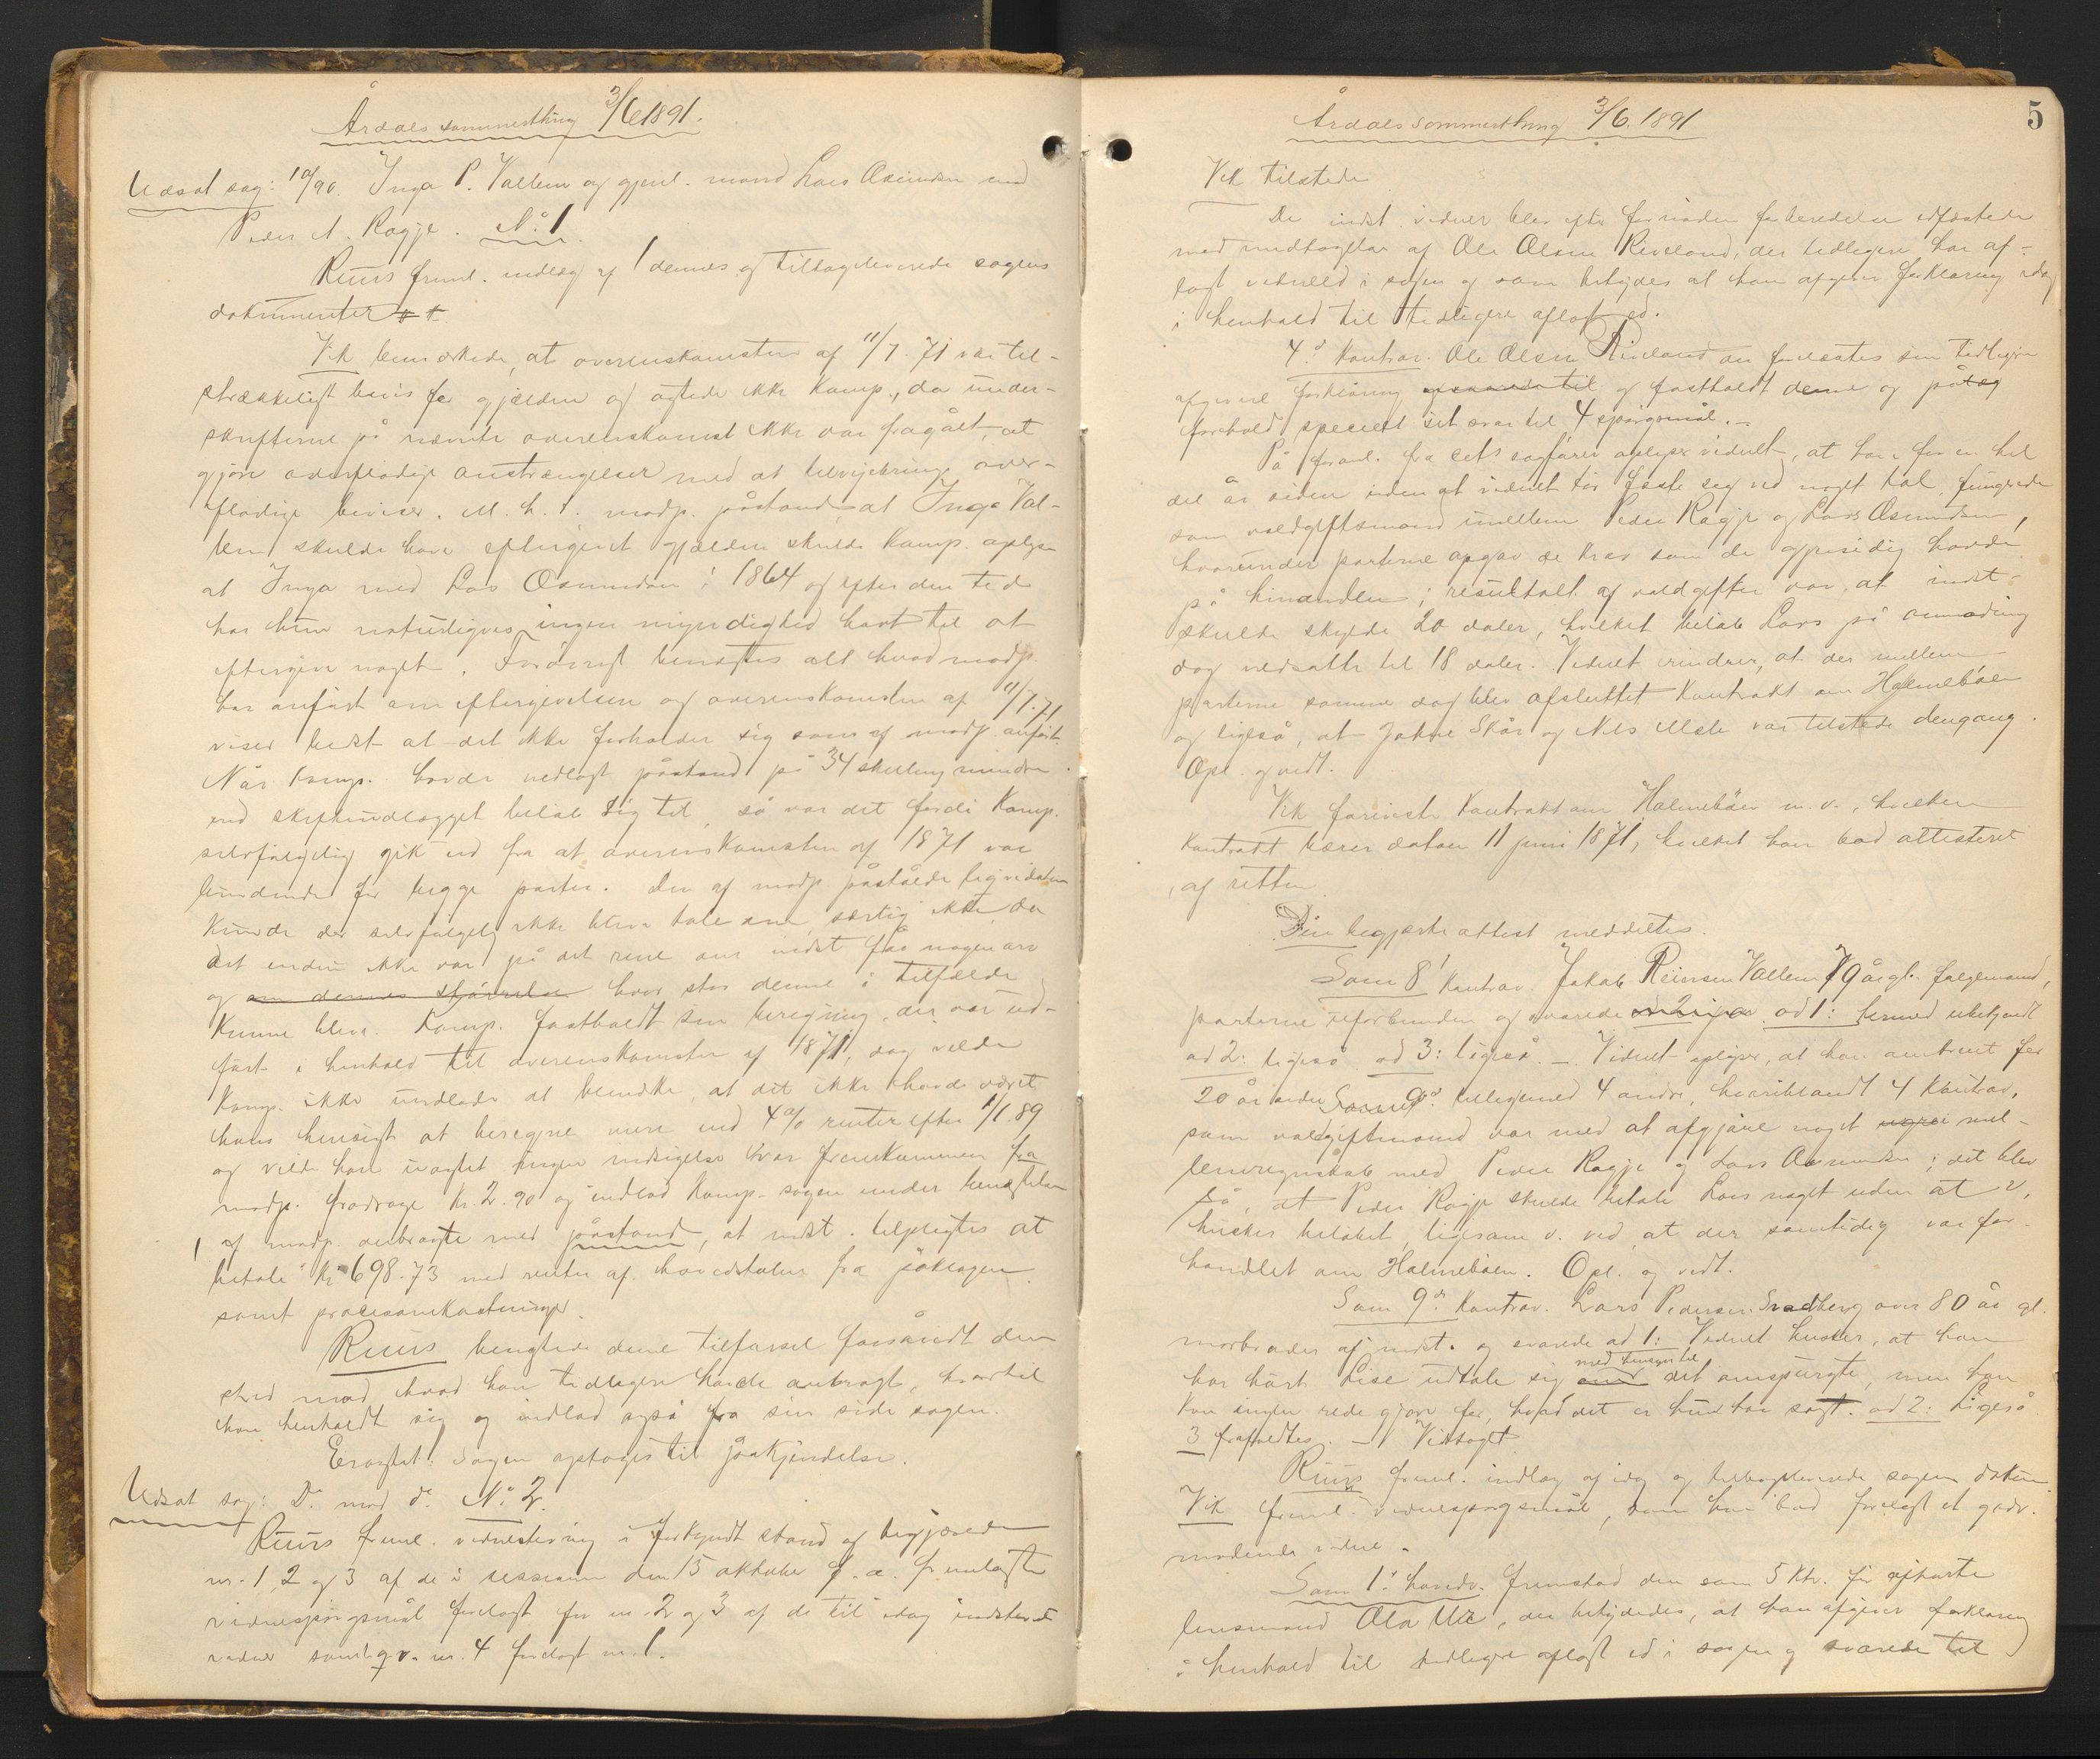 Årdals sommerthing 3/6 1891.
Udsat sag: 10/90. Inga P. Vallem og gjenl. mand Lars Osmundsen mod
Peder A. Ragje. No. 1
Ruus freml. indlæg af dennes og tilbageleverede sagens
dokumenter
Vik bemærkede, at overenskomsten af 11/7. 71 var til-
strækkeligt bevis for gjælden og agtede ikke Komp., da under-
skrifterne på nævnte overenskomst ikke var fragået, at
gjøre overflødige anstrængelser med at tilvejebringe over-
flødige beviser. M. h. t. modp. påstand, at Inga Val-
lem skulde have eftergivet gjælden skulde Komp. oplyse
at Inga med Lars Osmundsen i 1864 og efter den tid
har hun naturligvis ingen myndighed havt til at
eftergive noget. Forøvrigt benægtes alt hvad modp.
har anført om eftergivelsen og overenskomsten af 11/7. 71
viser bedst at det ikke forholder sig som af modp. anført.
Når Komp. havde nedlagt påstand på 34 skilling mindre
end skifteudlægget beløb sig til, så var det fordi Komp.
selvfølgelig gik ud fra at overenskomsten af 1871 var
bindende for begge parter. Den af modp. påståede
kunde der selvfølgelig ikke blive tale om, særlig ikke da
det endnu ikke var på det rene om indst. fik nogen arv
og om dennes størrelse hvor stor denne i tilfælde
kunne blive. Komp. fastholdt sin beregning, der var ud-
ført i henhold til overenskomsten af 1871, dog vilde
Komp. ikke undlade at bemærke, at det ikke havde været
hans hensigt at beregne mere end 4 % renter efter 1/1 89
og vilde han uagtet ingen indsigelse var fremkommen fra
modp. fradrage Kr. 2.90 og indlod Komp. sagen under benægtelse
af modp. anbragte med påstand, at indst. tilpligtes at
betale Kr 698.73 med renter af hovedstolen fra påklagen
samt procesomkostninger.
Ruus benægtede denne tilførsel forsåvidt den
stred mod, hvad han tidligere havde anbragt, hvortil
han henholdt sig og indlod også fra sin side sagen.
Eragtet: Sagen optages til påkjendelse.
Udsat sag: Do. mod do. No. 2.
Ruus freml. vidnestevning i forkyndt stand og begjærede
nr. 1, 2 og 3 af de i sessionen den 15 oktober f. a. fremlagte
vidnespørgsmål forelagt for nr. 2 og 3 af de til idag indstevnte
vidner samt nr. 4 forelagt nr. 1.
5
Årdals sommerthing 3/6. 1891
Vik tilstede
De indst. vidner blev efter foreviden forberedelse edfæstede
med undtagelse af Ole Olsen Riveland, der tidligere har af-
lagt vidneed i sagen og som betydes at han afgiver forklaring idag
i henhold til tidligere aflagt ed.
4de Kontrav. Ole Olsen Riveland foreholdtes sin tidligere
afgivne forklaring og fastholdt denne og
forehold specielt sit svar til 4 spørgsmål. –
På foranl. fra cit.s sagfører oplyser vidnet, at han for en hel
del år siden uden at vidnet tør fæste sig ved noget tal, fungerede
som voldgiftsmand imellem Peder Ragje og Lars Osmundsen,
hvorunder parterne opgav de krav som de gjensidig havde
på hinanden; resultatet af voldgiften var, at indst.
skulde skylde 20 daler, hvilket beløb Lars på anmodning
dog nedsatte til 18 daler. Vidnet erindrer, at der mellem
parterne samme dag blev afsluttet kontrakt om Holmebøen
og ligeså, at Jakob Skår og Nils Mæle var tilstede dengang.
Opl. og vedt.
Vik foreviste kontrakt om Holmebøen m. v., hvilken
kontrakt bærer datoen 11 juni 1871, hvilket han bad attesteret
af retten.
Den begjærte attest meddeltes.
Som 8' Kontrav. Jakob Reiersen Vallem 79 år gl. følgemand,
parterne uforbunden og svarede ad 1: hermed ubekjendt
ad 2: ligeså ad 3: ligeså. – Vidnet oplyser, at han omtrent for
20 år siden tilligemed 4 andre, hvoriblandt 4 Kontrav.
som voldgiftsmand var med at afgjøre noget mel-
lemregnskab med Peder Ragje og Lars Osmundsen; det blev
så, at Peder Ragje skulde betale Lars noget uden at v.
husker beløbet, ligesom v. ved, at der samtidig var for-
handlet om Holmebøen. Opl. og vedt.
Som 9de Kontrav. Lars Pedersen Svadberg over 80 år gl.
morbroder af indst. og svarede ad 1: Vidnet husker, at han
har hørt Lise udtale sig med hensyn til det omspurgte, men han
kan ingen rede gjøre for, hvad det er hun har sagt. ad 2: Ligeså
3 frafaldtes. – Vedtaget
Ruus freml. indlæg af idag og tilbageleverede sagens dokum.
Vik freml. vidnespørgsmål, som han bad forelagt et godv.
mødende vidne.
Som 1ste hovedv. fremstod den som 5 Ktr. før afhørte
lensmand Ola Vie, der betydedes, at han afgiver forklaring
i henhold til tidligere aflagt ed i sagen og svarede til